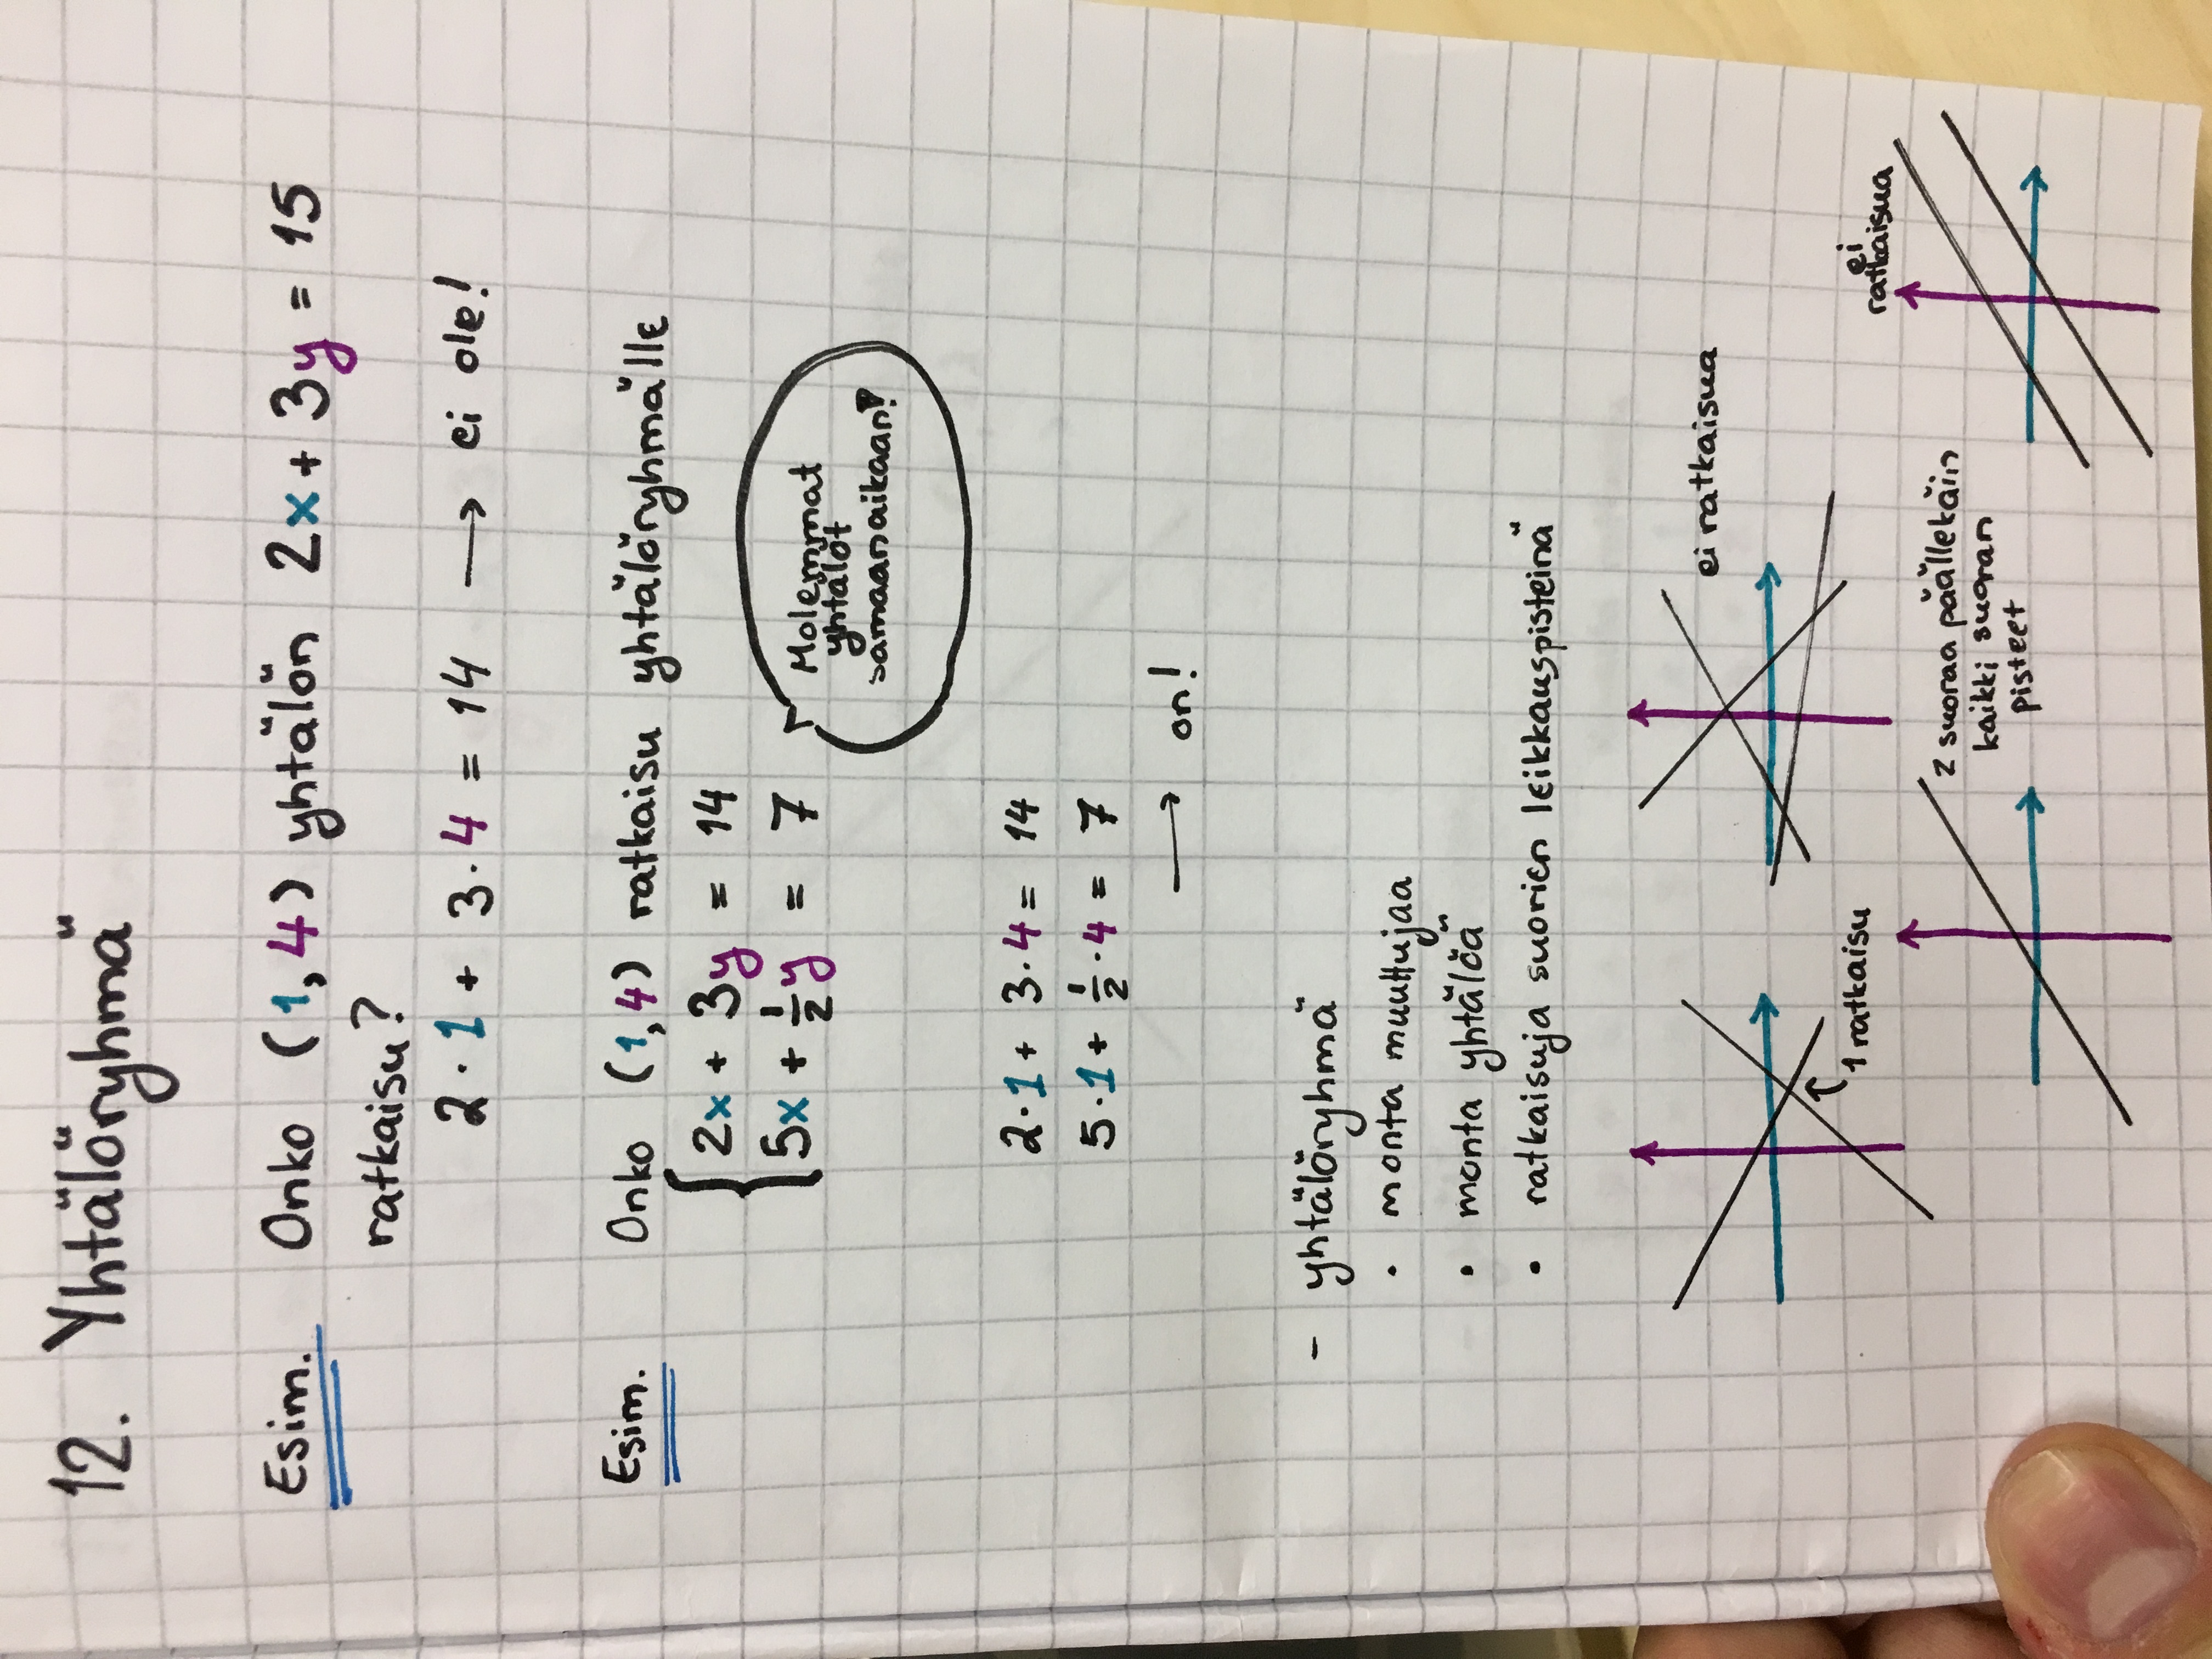 12. Yhtälöryhmä
Esim. Onko (1,4) yhtälön 2x + 3y = 15
ratkaisu?
2 · 1 + 3 · 4 = 14 → ei ole!
Esim. Onko (1,4) ratkaisu yhtälöryhmälle
{ 2x + 3y = 14
5x + 1/2 y = 7
Molemmat
yhtälöt
samaan aikaan!
2·1 + 3·4 = 14
5·1 + 1/2·4 = 7
→ on!
– yhtälöryhmä
• monta muuttujaa
• monta yhtälöä
• ratkaisuja suorien leikkauspisteinä
1 ratkaisu
ei ratkaisua
2 suoraa päällekäin
kaikki suoran
pisteet
ei
ratkaisua